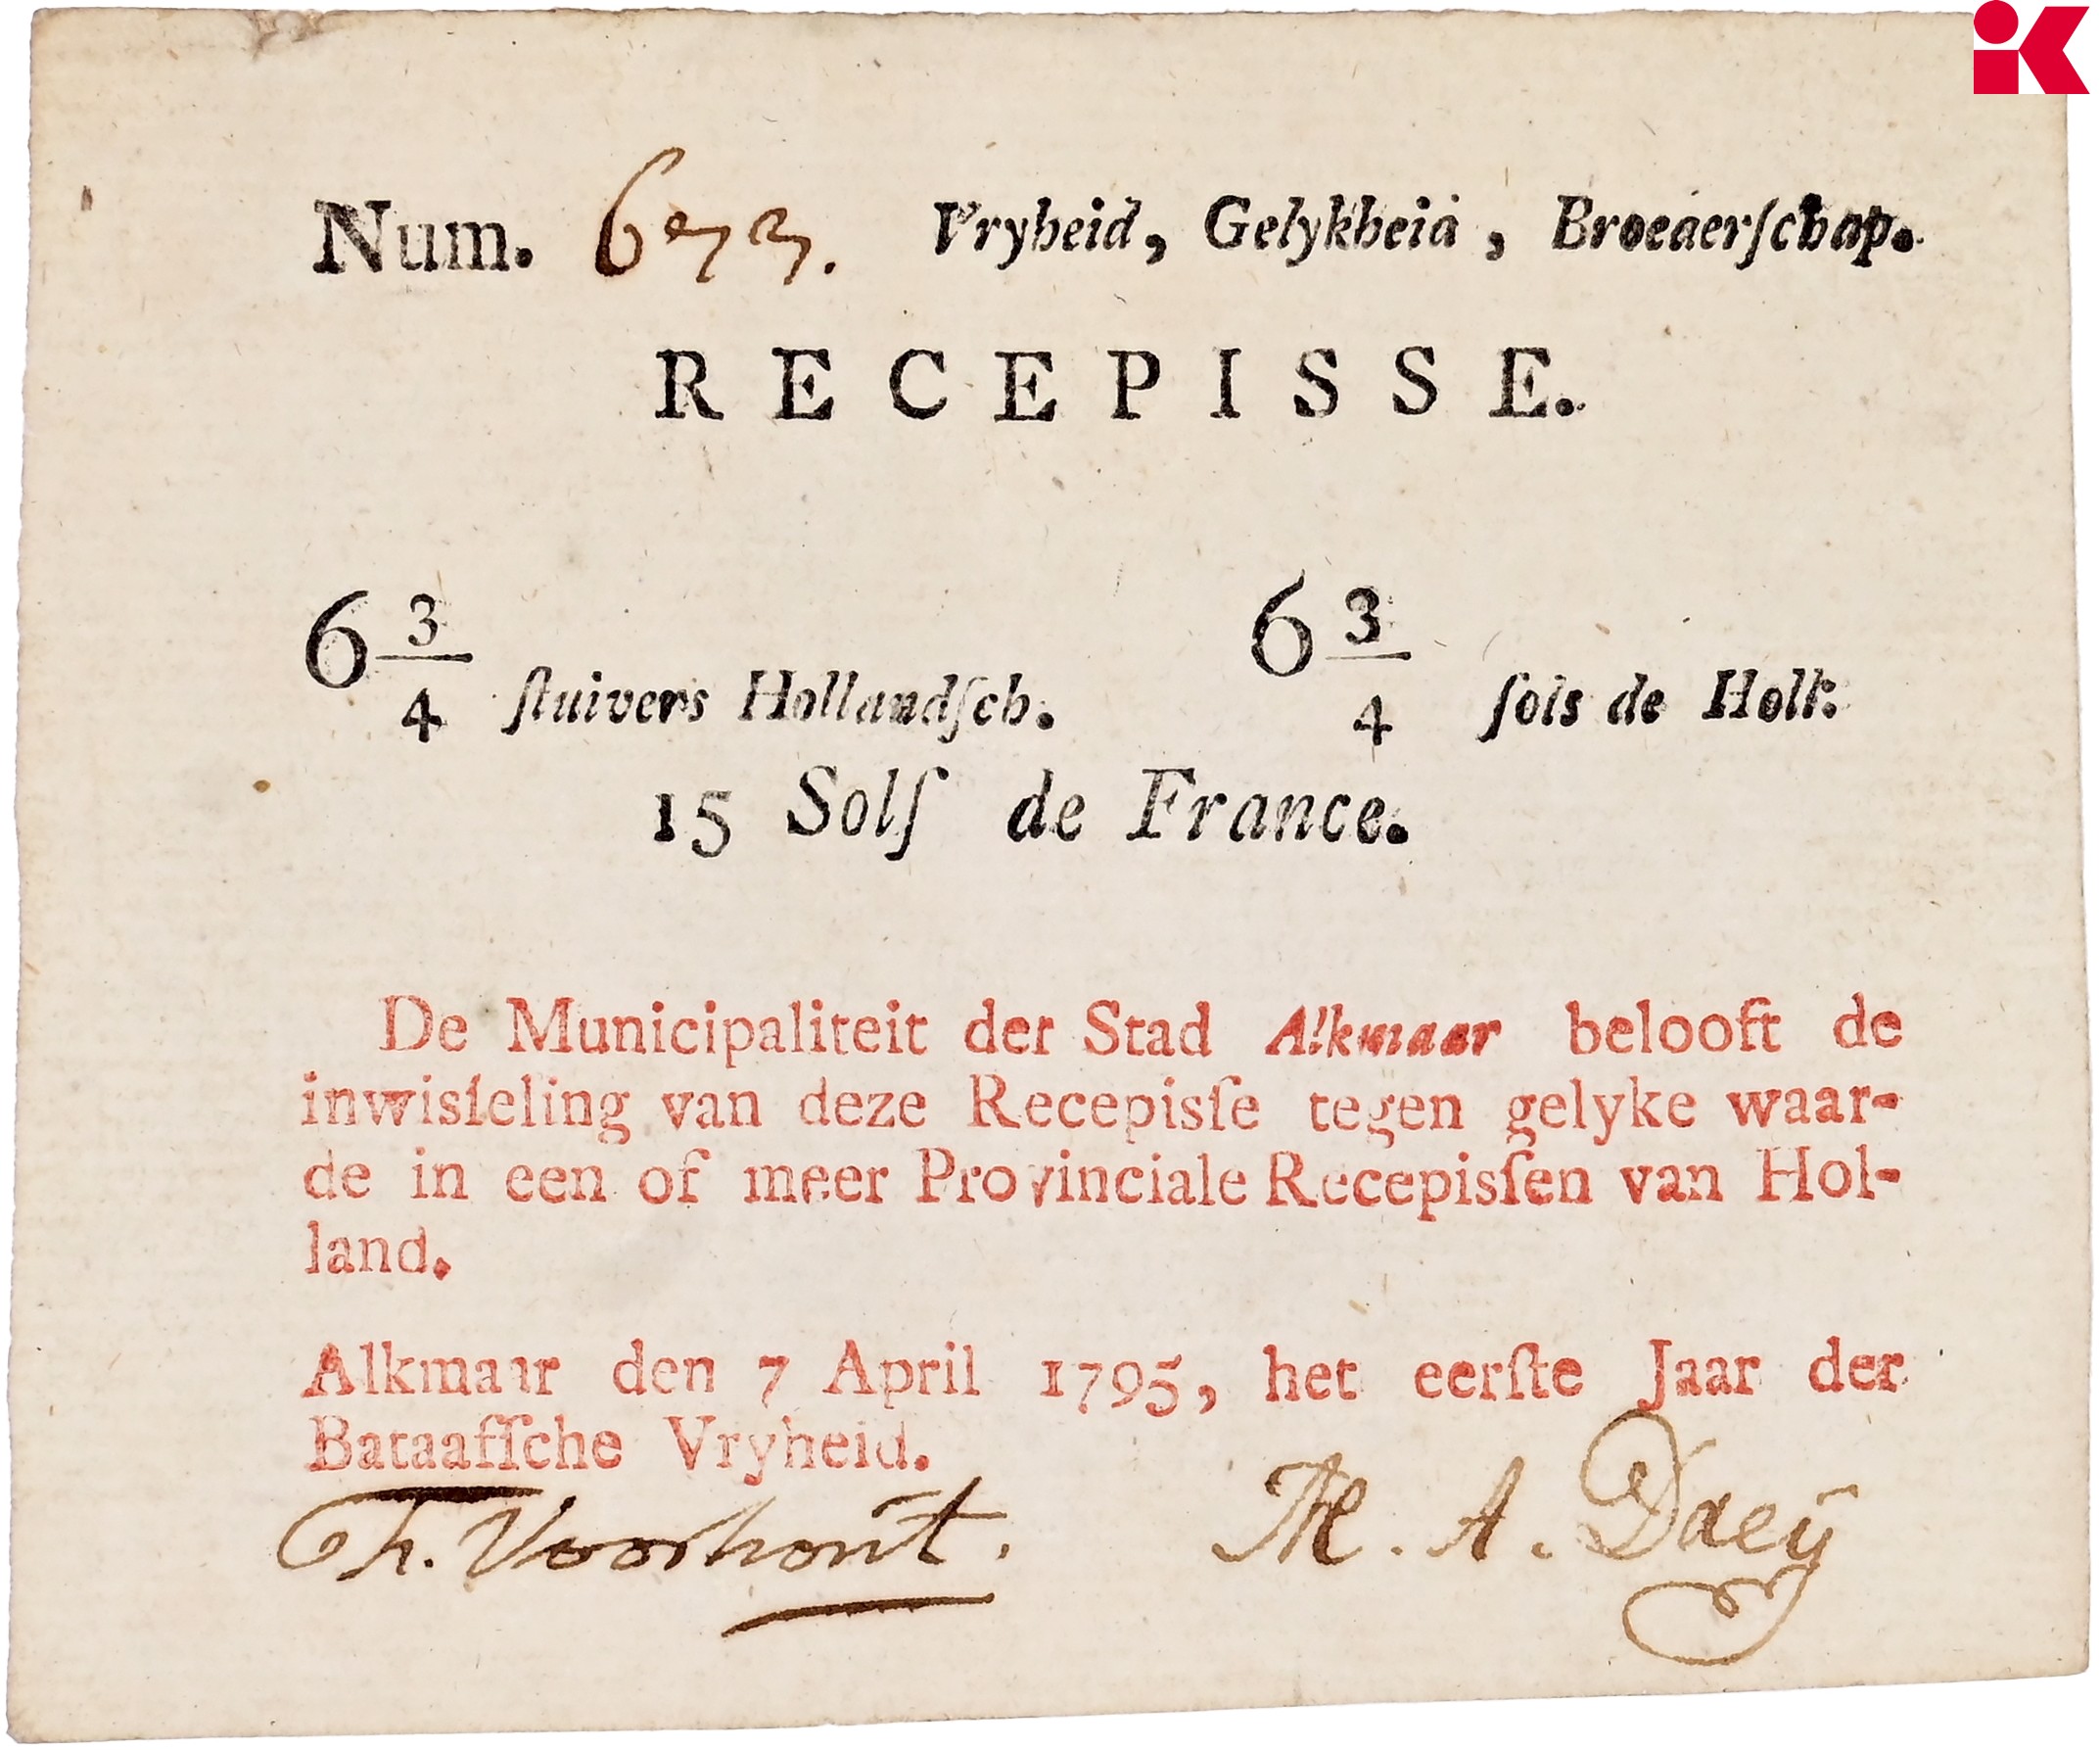 Num. 673. Vryheid, Gelykheid, Broederſchap.
RECEPISSE.
6 3/4 ſtuivers Hollandſch. 6 3/4 ſols de Holl:
15 Solſ de France.
De Municipaliteit der Stad Alkmaar belooft de
inwisſeling van deze Recepisſe tegen gelyke waar-
de in een of meer Provinciale Recepisſen van Hol-
land.
Alkmaar den 7 April 1795, het eerſte Jaar der
Bataafſche Vryheid.
Voorhout. M. A. Daeÿ